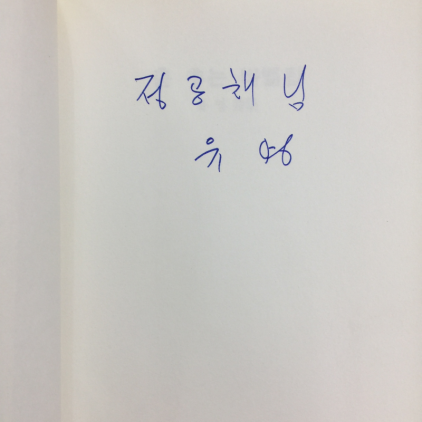 정공채 님
유영